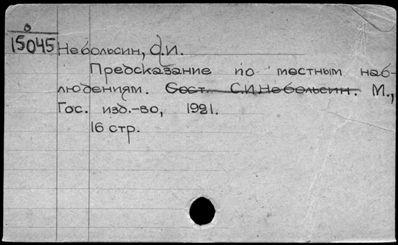 0
15045 Небольсин, С.И.
Предсказание по местным наб-
людениям. Сост. С.И.Небольсин. М.,
Гос. изд.-во, 1921.
16 стр.